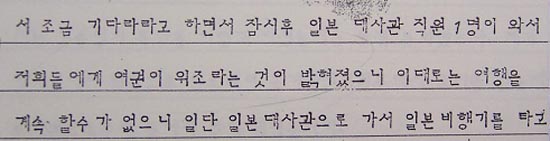 서 조금 기다리라고 하면서 잠시후 일본 대사관 직원 1명이 와서
저희들에게 여권이 위조라는 것이 밝혀졌으니 이대로는 여행을
계속 할수가 없으니 일단 일본대사관으로 가서 일본비행기를 타고